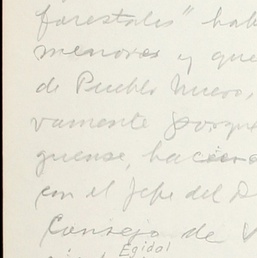 forestales" hab
menores y que
de Pueblo Nuevo,
vamente porque
guense, hacien
con el jefe del D
Egidal
Consejo de V